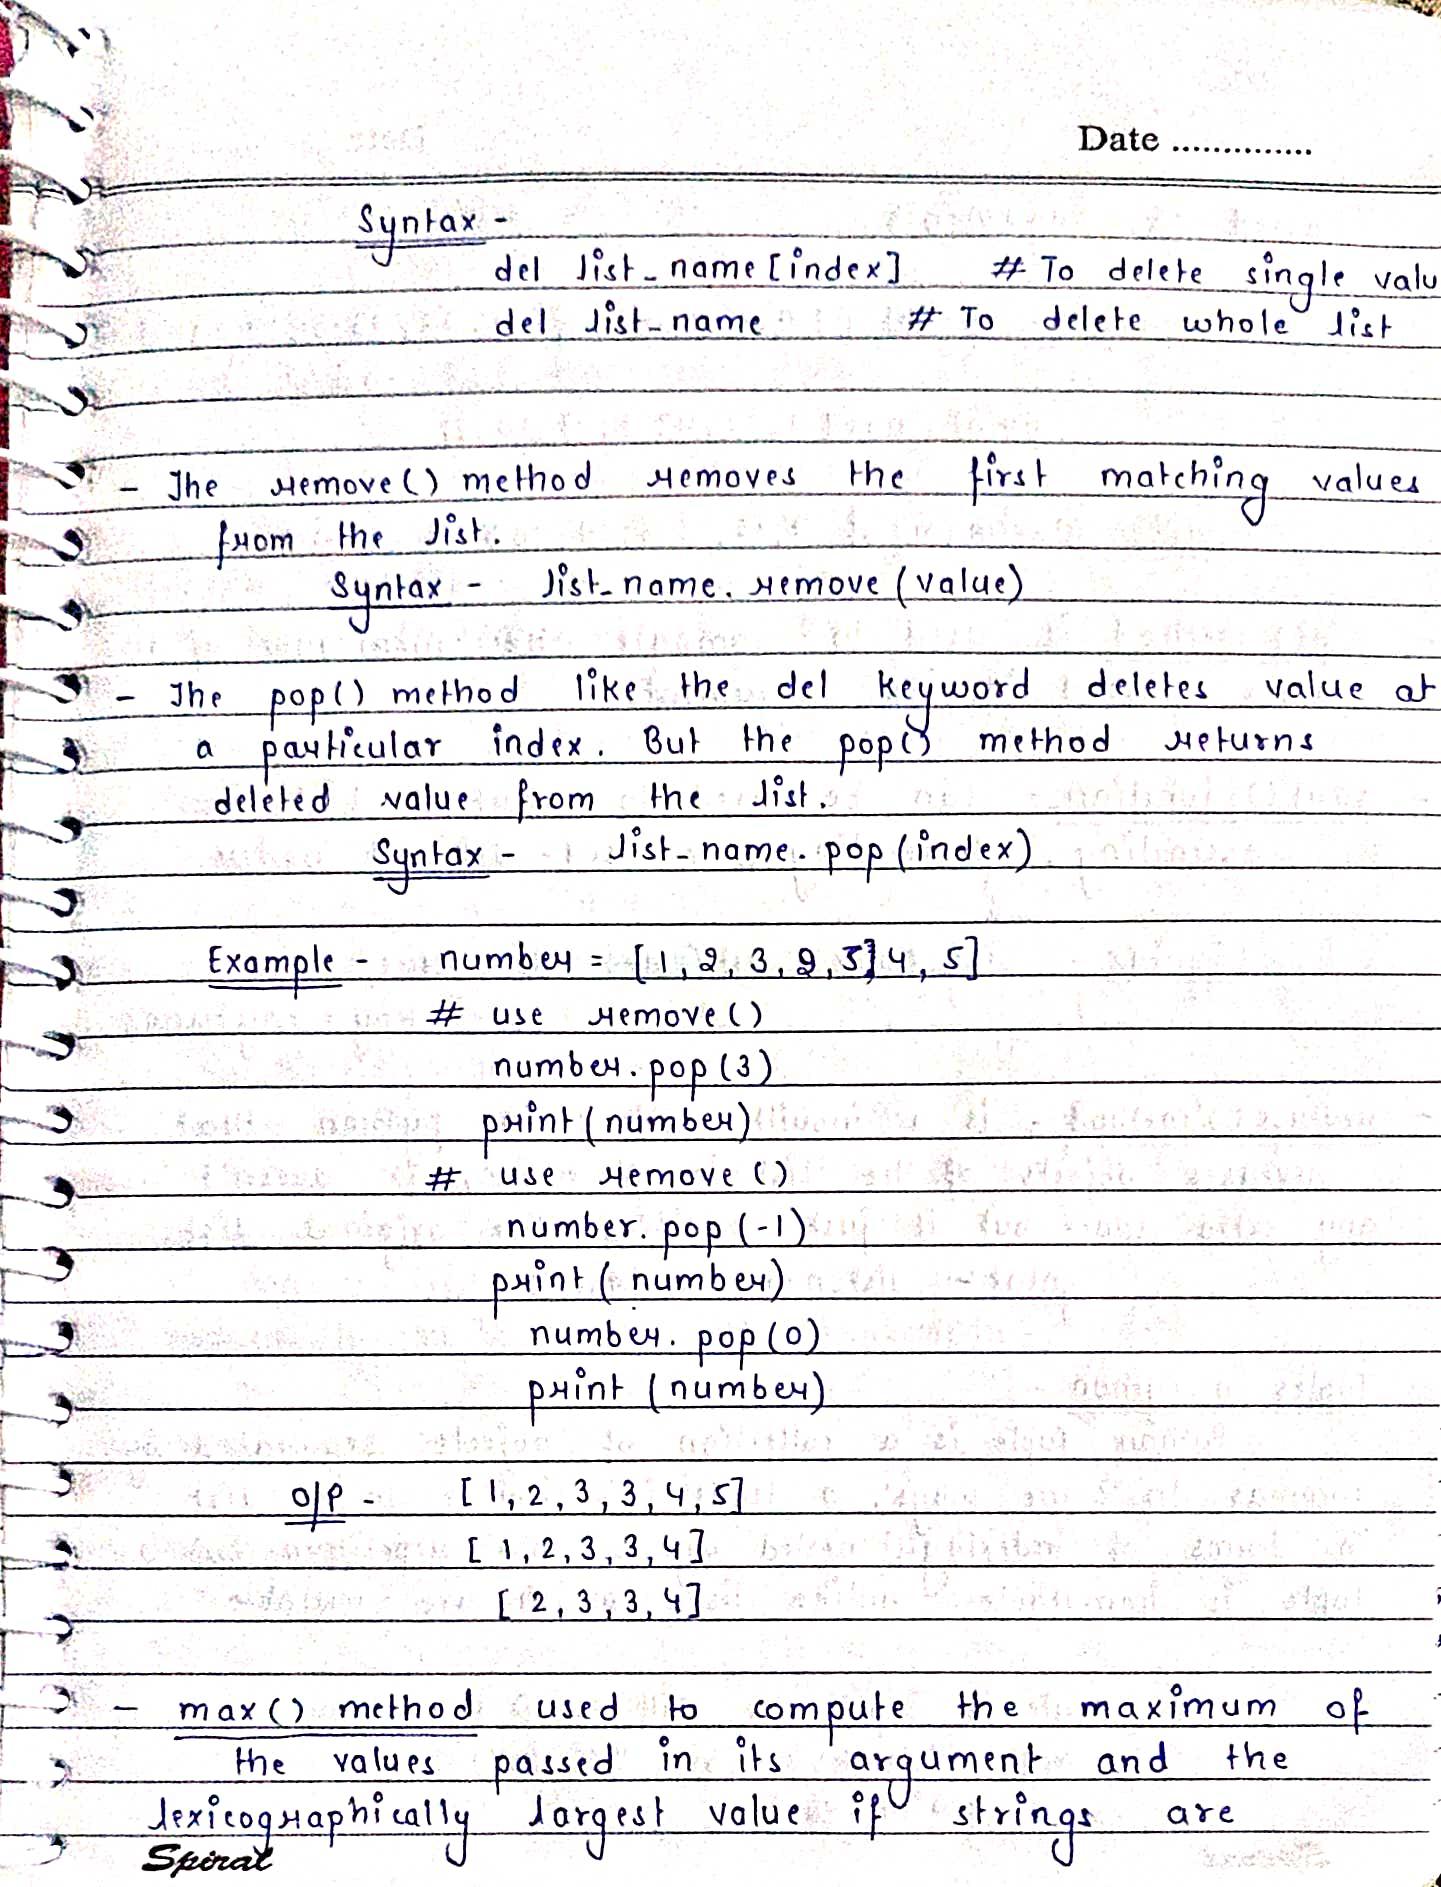 Date ..............
Syntax -
del list_name [index] # To delete single valu
del list_name # To delete whole list
- The remove() method removes the first matching values
from the list.
Syntax - list_name. remove (value)
- The pop() method like the del keyword deletes value at
a particular index. But the pop() method returns
deleted value from the list.
Syntax - list_name. pop (index)
Example - number = [1, 2, 3, 2, 3] 4, 5]
# use remove()
number. pop (3)
print (number)
# use remove ()
number. pop (-1)
print ( number)
number. pop (0)
print (number)
O/P - [1, 2, 3, 3, 4, 5]
[ 1, 2, 3, 3, 4]
[ 2, 3, 3, 4]
- max() method used to compute the maximum of
the values passed in its argument and the
lexicographically largest value if strings are
Spiral